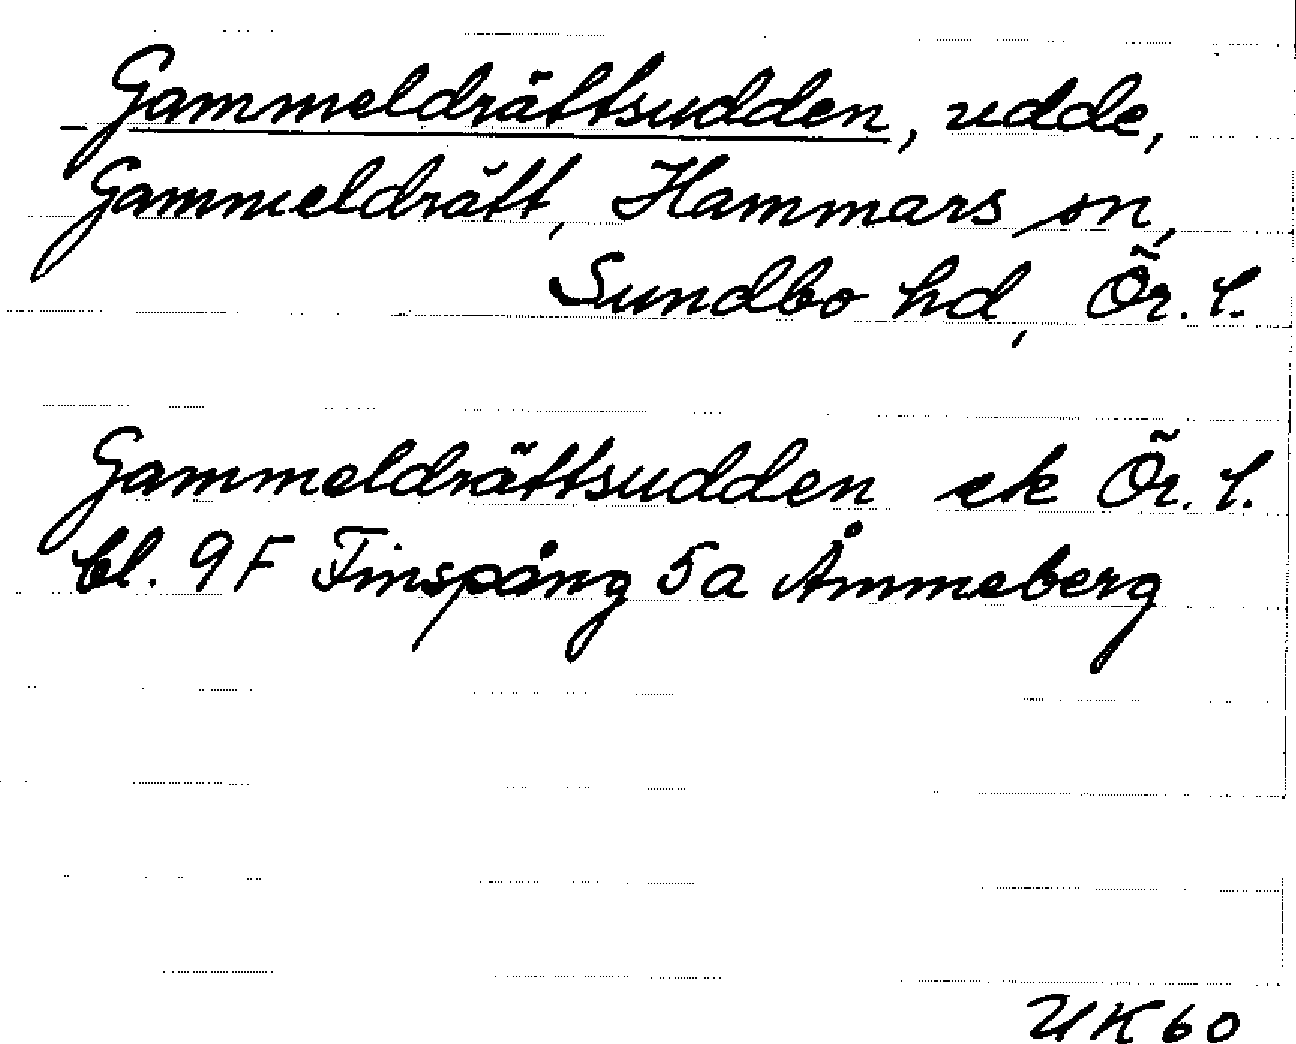 Gammeldrättsudden, udde,
Gammeldrätt, Hammars sn,
Sundbo hd, Ör. l.
Gammeldrättsudden ek Ör. l.
bl. 9F Finspång 5a Åmmeberg
UK60